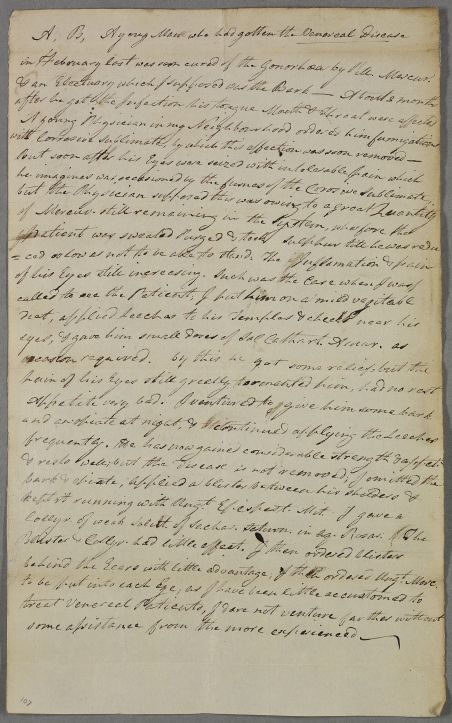 A. B, A young Man who had gotten the Venereal Disease
in February last was soon cured of the Gonorrhœa by Pill. Mercur.
& an Electuary which I supposed was the Bark — About 3 months
after he got the Infection his tongue Mouth & throat were affected
A young Physician in my Neighbourhood orderd him fumigations
with Corrosive Sublimate, by which this affection was soon removed —
but soon after his Eyes were seized with intolerable pain which
he imagines was occasioned by the fumes of the Corrosive Sublimate;
but the Physician supposed this was owing to a great Quantity
of Mercury still remaining in the System, wherefore the
patient was sweated Purged & took Sulphur till he was redu
=ced so low as not to be able to stand. The Inflamation & pain
of his Eyes still increasing. Such was the Case when I was
called to see the Patient, I put him on a mild vegitable
Deat, applied Leeches to his Temples & cheeks near his
eyes, & gave him small doses of Sal Cathart. Amar. as
occasion required. by this he got some relief but the
pain of his Eyes still greatly tormented him, had no rest
Appetite very bad. I ventured to give him some bark
and an opiate at night, & continued applying the Leeches
frequently. He has now gained considerable strength & appeti
& rests well; but the Disease is not removed; I omitted the
bark & opiate; applied a blister between his sholders &
kept it running with Ungt. Epispast. Mit. I gave a
Collyr. of weak Solut. of Sachar. Saturn. in aq. Rosar. The
Blister & Collyr. had little effect. I then ordered blisters
behind the Ears with little advantage, I then ordered Ungt. Merc.
to be put into each Eye, as I have been little accustomed to
treat Venereal Patients, I dare not venture farther without
some assistance from the more experienced —
107